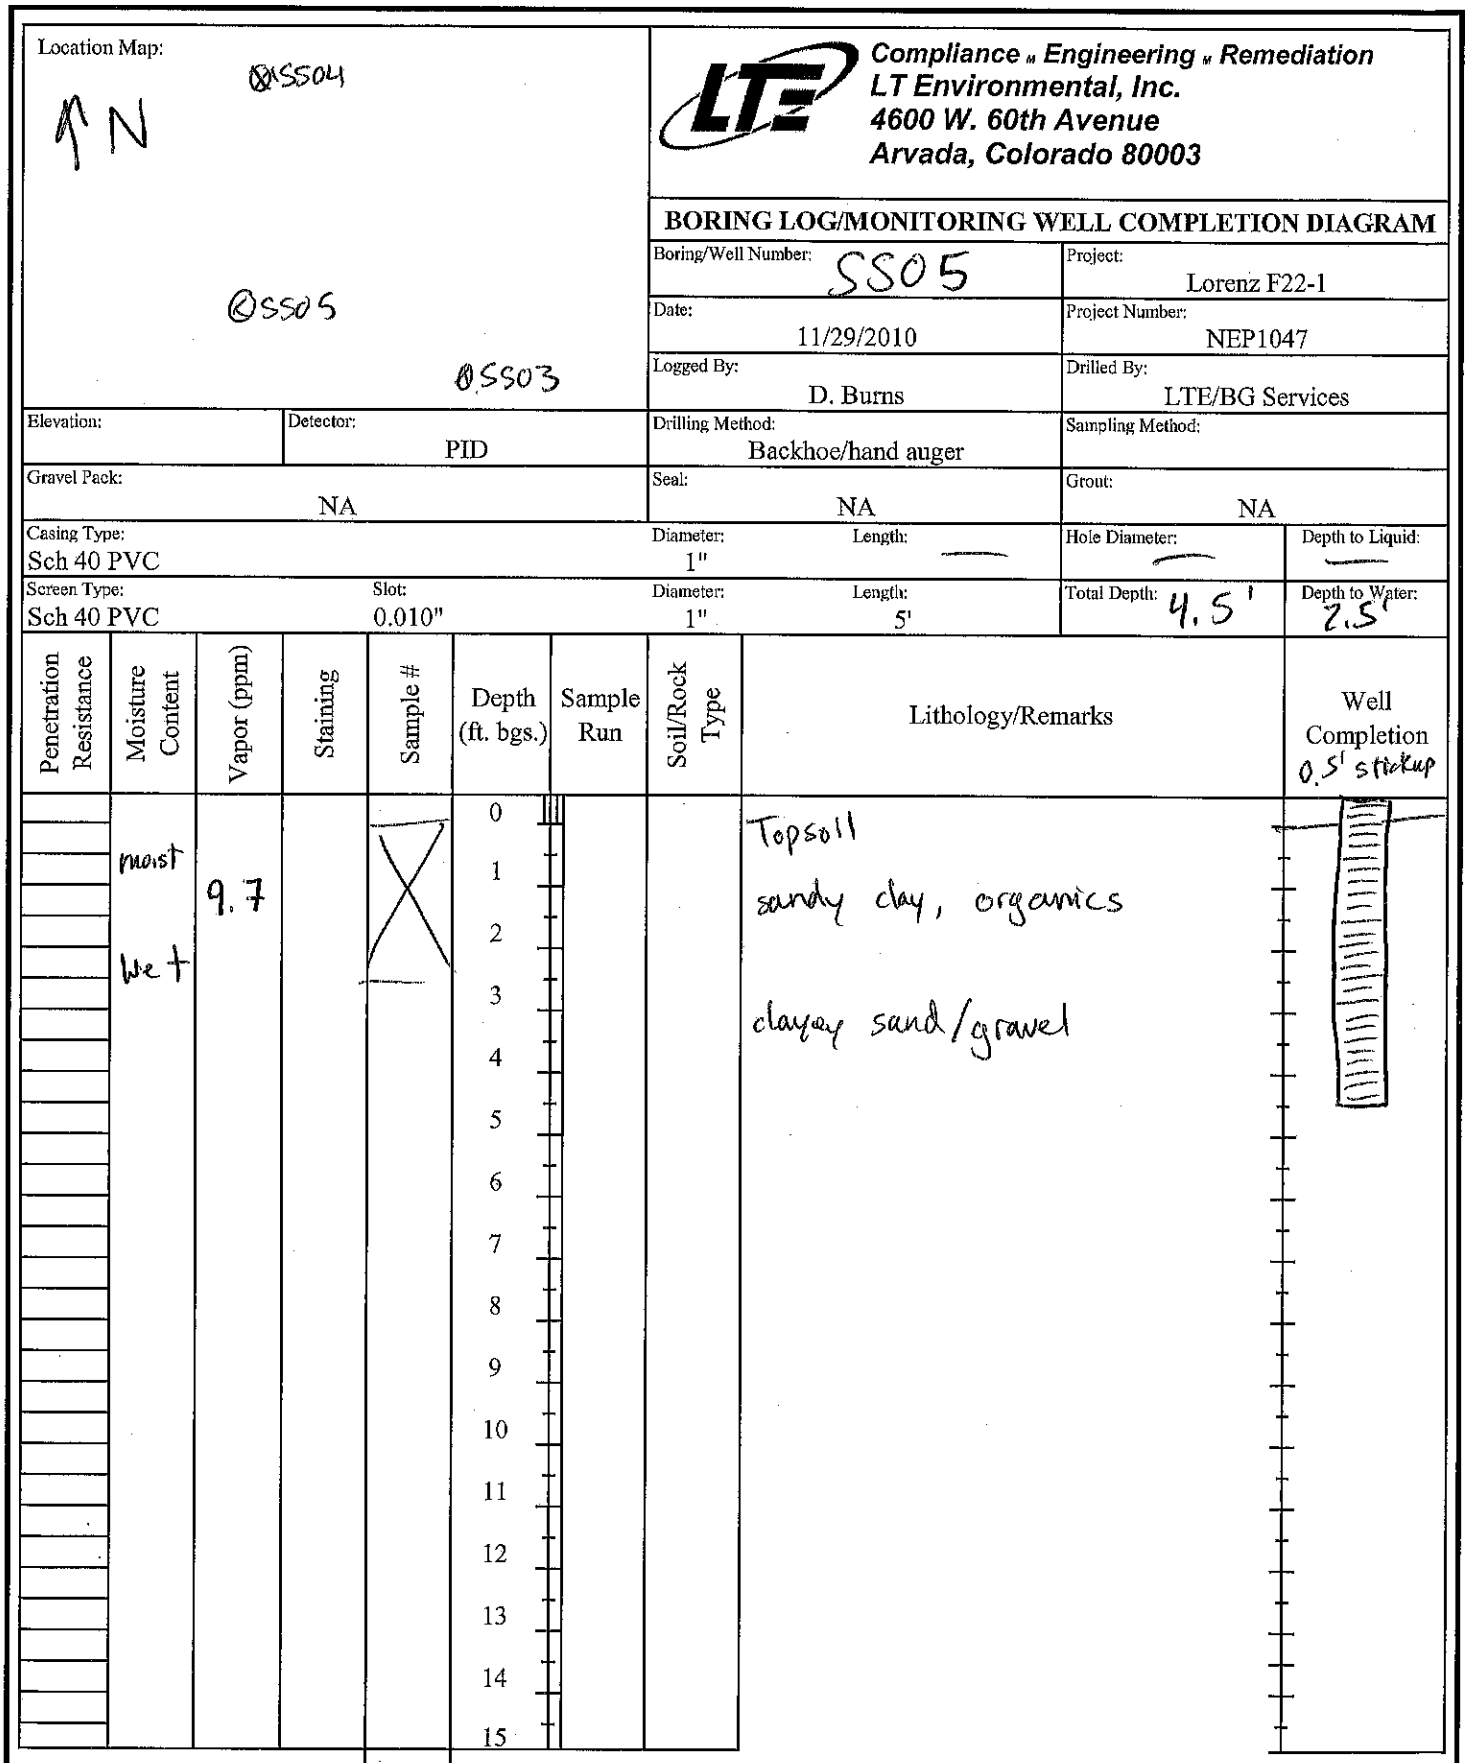 Location Map:
SS04
N
SS05
SS03
LTE
Compliance Engineering Remediation
LT Environmental, Inc.
4600 W. 60th Avenue
Arvada, Colorado 80003
BORING LOG/MONITORING WELL COMPLETION DIAGRAM
Boring/Well Number: SS05
Project: Lorenz F22-1
Date: 11/29/2010
Project Number: NEP1047
Logged By: D. Burns
Drilled By: LTE/BG Services
Elevation:
Detector: PID
Drilling Method: Backhoe/hand auger
Sampling Method:
Gravel Pack: NA
Seal: NA
Grout: NA
Casing Type: Sch 40 PVC
Diameter: 1"
Length: —
Hole Diameter: —
Depth to Liquid: —
Screen Type: Sch 40 PVC
Slot: 0.010"
Diameter: 1"
Length: 5'
Total Depth: 4.5'
Depth to Water: 2.5'
Penetration Resistance
Moisture Content
Vapor (ppm)
Staining
Sample #
Depth (ft. bgs.)
Sample Run
Soil/Rock Type
Lithology/Remarks
Well Completion
0.5' stickup
0
Topsoil
moist
1
9.7
sandy clay, organics
2
wet
3
clayey sand/gravel
4
5
6
7
8
9
10
11
12
13
14
15